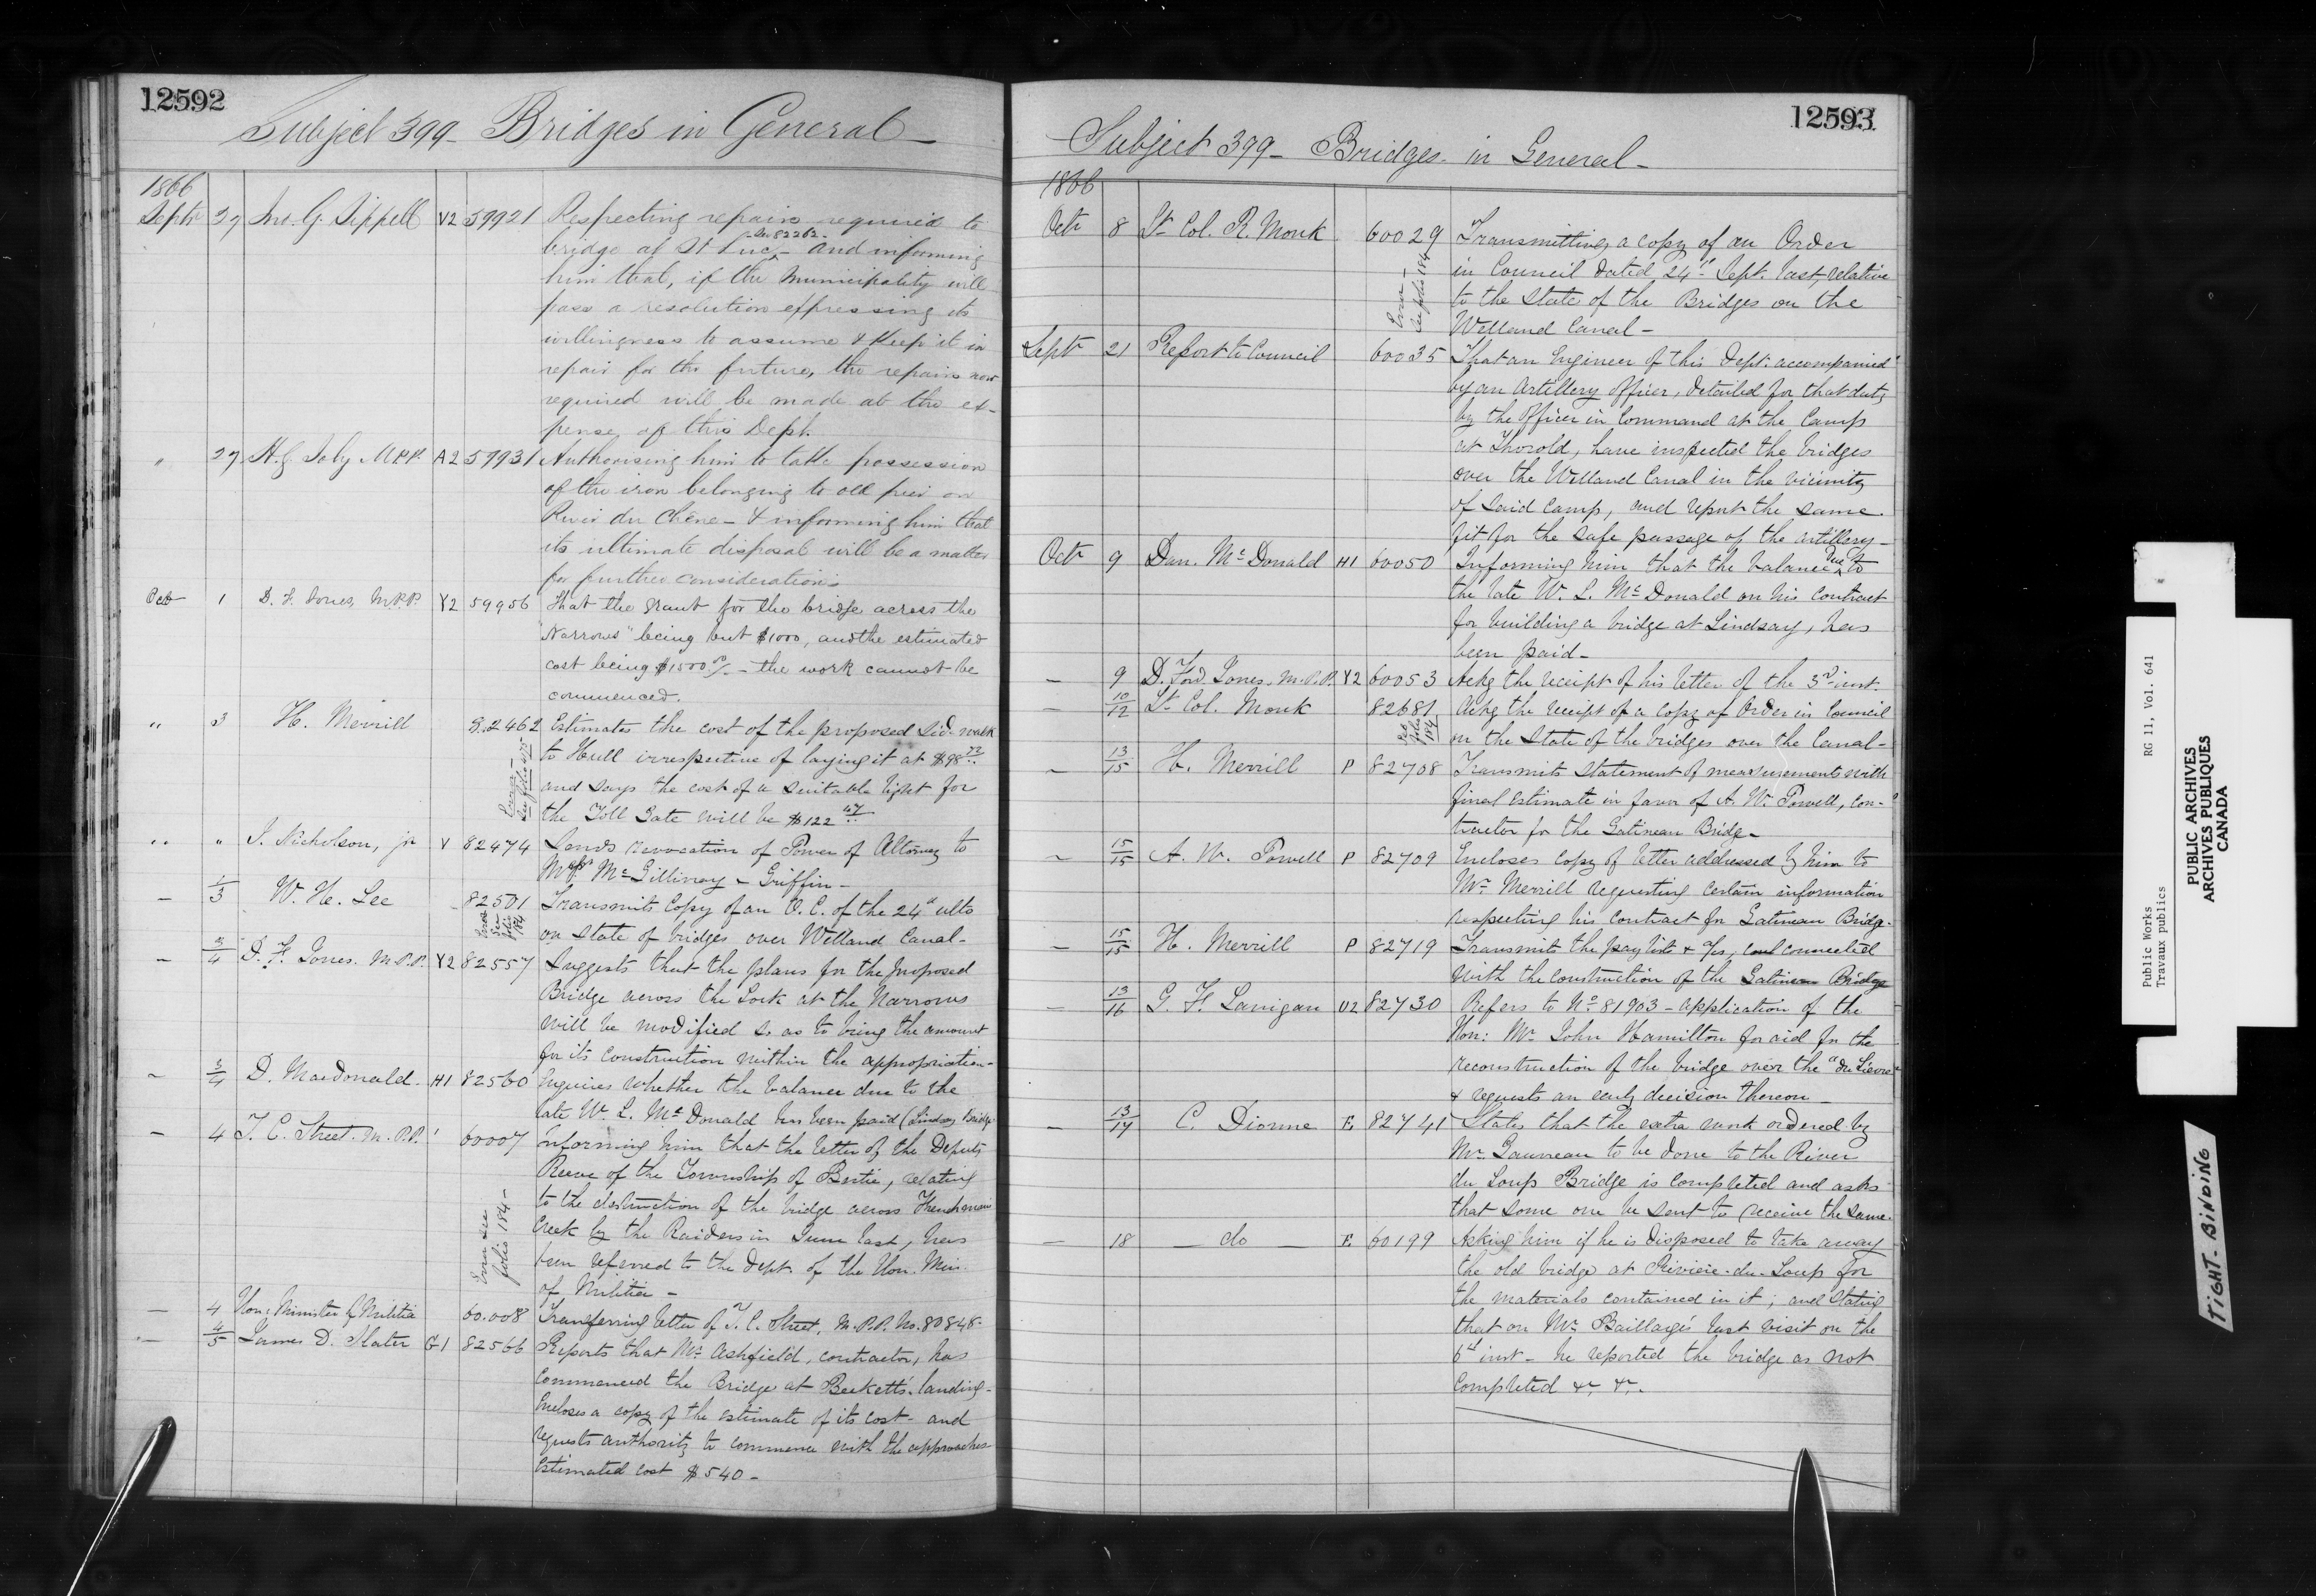 12592
Subject 399 - Bridges in General -
1866
Septr 27 Jno. G. Sippell V2 59921 Respecting repairs required to
See 82262 -
bridge at St Luc - and informing
him that, if the Municipality will
pass a resolution expressing its
willingness to assume & keep it in
repair for the future, the repairs now
required will be made at the ex-
pense of this Dept.
" 27 H. G. Joly M.P.P. A2 57931 Authorising him to take possession
of the iron belonging to old pier on
River du Chêne - & informing him that
its ultimate disposal will be a matter
for further consideration
Oct 1 D. F. Jones, M.P.P. Y2 59956 That the grant for the bridge across the
"Narrows" being but $1000, and the estimated
cost being $1500 - the work cannot be
commenced.
" 3 H. Merrill 82462 Estimates the cost of the proposed Side walk
to Hull irrespective of laying it at $98
and says the cost of a suitable light for
the Toll Gate will be $122 47
Error - See folio
" " J. Nicholson, jr V 82474 Sends revocation of Power of Attorney to
McGillivray & Griffin -
- 1/3 W. H. Lee 82501 Transmits Copy of an O. C. of the 24th ulto
on state of bridges over Welland Canal -
Error See folio 184
- 3/4 D. F. Jones. M.P.P. Y2 82557 Suggests that the plans for the proposed
Bridge across the Lock at the Narrows
will be modified so as to bring the amount
for its construction within the appropriation -
- 3/4 D. MacDonald - H1 82560 Enquires whether the balance due to the
late W. L. McDonald has been paid (Lindsay Bridge
- 4 T. C. Street. M.P.P. 60007 Informing him that the letter of the Deputy
Reeve of the Township of Bertie, relating
to the destruction of the bridge across Frenchman
Creek by the Raiders in June last, has
been referred to the Dept. of the Hon. Min.
of Militia -
Error see folio 184 -
- 4 Hon: Minister of Militia 60.008 Transferring letter of T. C. Street, M.P.P. No. 80848 -
- 4/5 James D. Slater G1 82566 Reports that Mr. Ashfield, contractor, has
Commenced the Bridge at Beckett's landing -
Encloses a copy of the estimate of its cost - and
requests authority to commence with the approaches
Estimated cost $540 -
12593
Subject 399 - Bridges in General -
1866
Oct 8 Lt Col. R. Monk 60029 Transmitting a copy of an Order
in Council dated 24th Sept. last, relative
to the State of the Bridges on the
Welland Canal -
Error - See folio 184
Septr 21 Report to Council 60035 That an Engineer of this Dept. accompanied
by an Artillery Officer, detailed for that duty
by the Officer in Command at the Camp
at Thorold, have inspected the bridges
over the Welland Canal in the vicinity
of said Camp, and report the same
fit for the safe passage of the artillery -
Oct 9 Dan. McDonald H1 60050 Informing him that the balance due to
the late W. L. McDonald on his Contract
for building a bridge at Lindsay, has
been paid -
- 9 D. Ford Jones. M.P.P. Y2 60053 Ackg the receipt of his letter of the 3rd inst.
- 10/12 Lt Col. Monk 82681 Ackg the receipt of a copy of Order in Council
on the State of the bridges over the Canal -
folio 184
- 13/15 H. Merrill P 82708 Transmits Statement of measurements with
final Estimate in favor of A. W. Powell, con-
tractor for the Gatineau Bridge -
- 15/15 A. W. Powell P 82709 Encloses Copy of letter addressed by him to
Mr. Merrill requesting certain information
respecting his contract for Gatineau Bridge.
- 15/15 H. Merrill P 82719 Transmits the pay lists & connected
with the construction of the Gatineau Bridge
- 13/16 G. H. Lanigan U2 82730 Refers to No 81903 - application of the
Hon: Mr. John Hamilton for aid for the
reconstruction of the bridge over the "du Lievre"
& requests an early decision thereon -
- 13/17 C. Dionne E 82741 States that the extra work ordered by
Mr. Gauvreau to be done to the River
du Loup Bridge is completed and asks
that some one be sent to receive the same.
- 18 - do - E 60199 Asking him if he is disposed to take away
the old bridge at Rivière-du-Loup for
the materials contained in it; and stating
that on Mr. Baillargé's last visit on the
6th inst - he reported the bridge as not
completed &c &c.
Public Works RG 11, Vol. 641
Travaux publics
PUBLIC ARCHIVES
ARCHIVES PUBLIQUES
CANADA
TIGHT BINDING